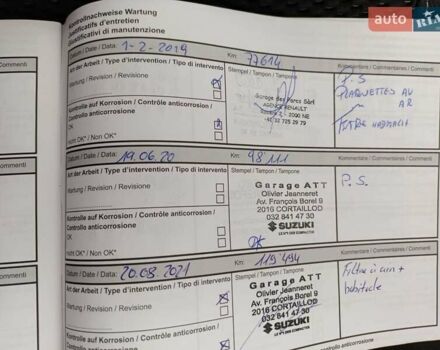 Kontrollnachweise Wartung
Justificatifs d'entretien
Giustificativi di manutenzione
auto
RIA
Datum / Date / Data: 1-2-2019 Km: 77614
Kommentare / Commentaires / Commenti
Art der Arbeit / Type d'intervention / Tipo di intervento
Wartung / Revision / Revisione
Stempel / Tampon / Timbro
Garage des Parcs Sàrl
AGENCE RENAULT
2000 NE
P.S
PLAQUETTES AV
AR
FILTRE HABITACLE
Kontrolle auf Korrosion / Contrôle anticorrosion /
Controllo anticorrosione
OK
Nicht OK* / Non OK*
Datum / Date / Data: 19.06.20 Km: 98 111
Kommentare / Commentaires / Commenti
Art der Arbeit / Type d'intervention / Tipo di intervento
Wartung / Revision / Revisione
Garage ATT
Olivier Jeanneret
Av. François Borel 9
2016 CORTAILLOD
032 841 47 30
SUZUKI
P.S.
Kontrolle auf Korrosion / Contrôle anticorrosion /
Controllo anticorrosione
OK
Nicht OK* / Non OK*
Datum / Date / Data: 20.08.2021 Km: 119'494
Kommentare / Commentaires / Commenti
Art der Arbeit / Type d'intervention / Tipo di intervento
Wartung / Revision / Revisione
Stempel / Tampon / Timbro
Garage ATT
Olivier Jeanneret
Av. François Borel 9
2016 CORTAILLOD
032 841 47 30
SUZUKI
Filtre à +
habitacle
Kontrolle auf Korrosion / Contrôle anticorrosion /
Controllo anticorrosione